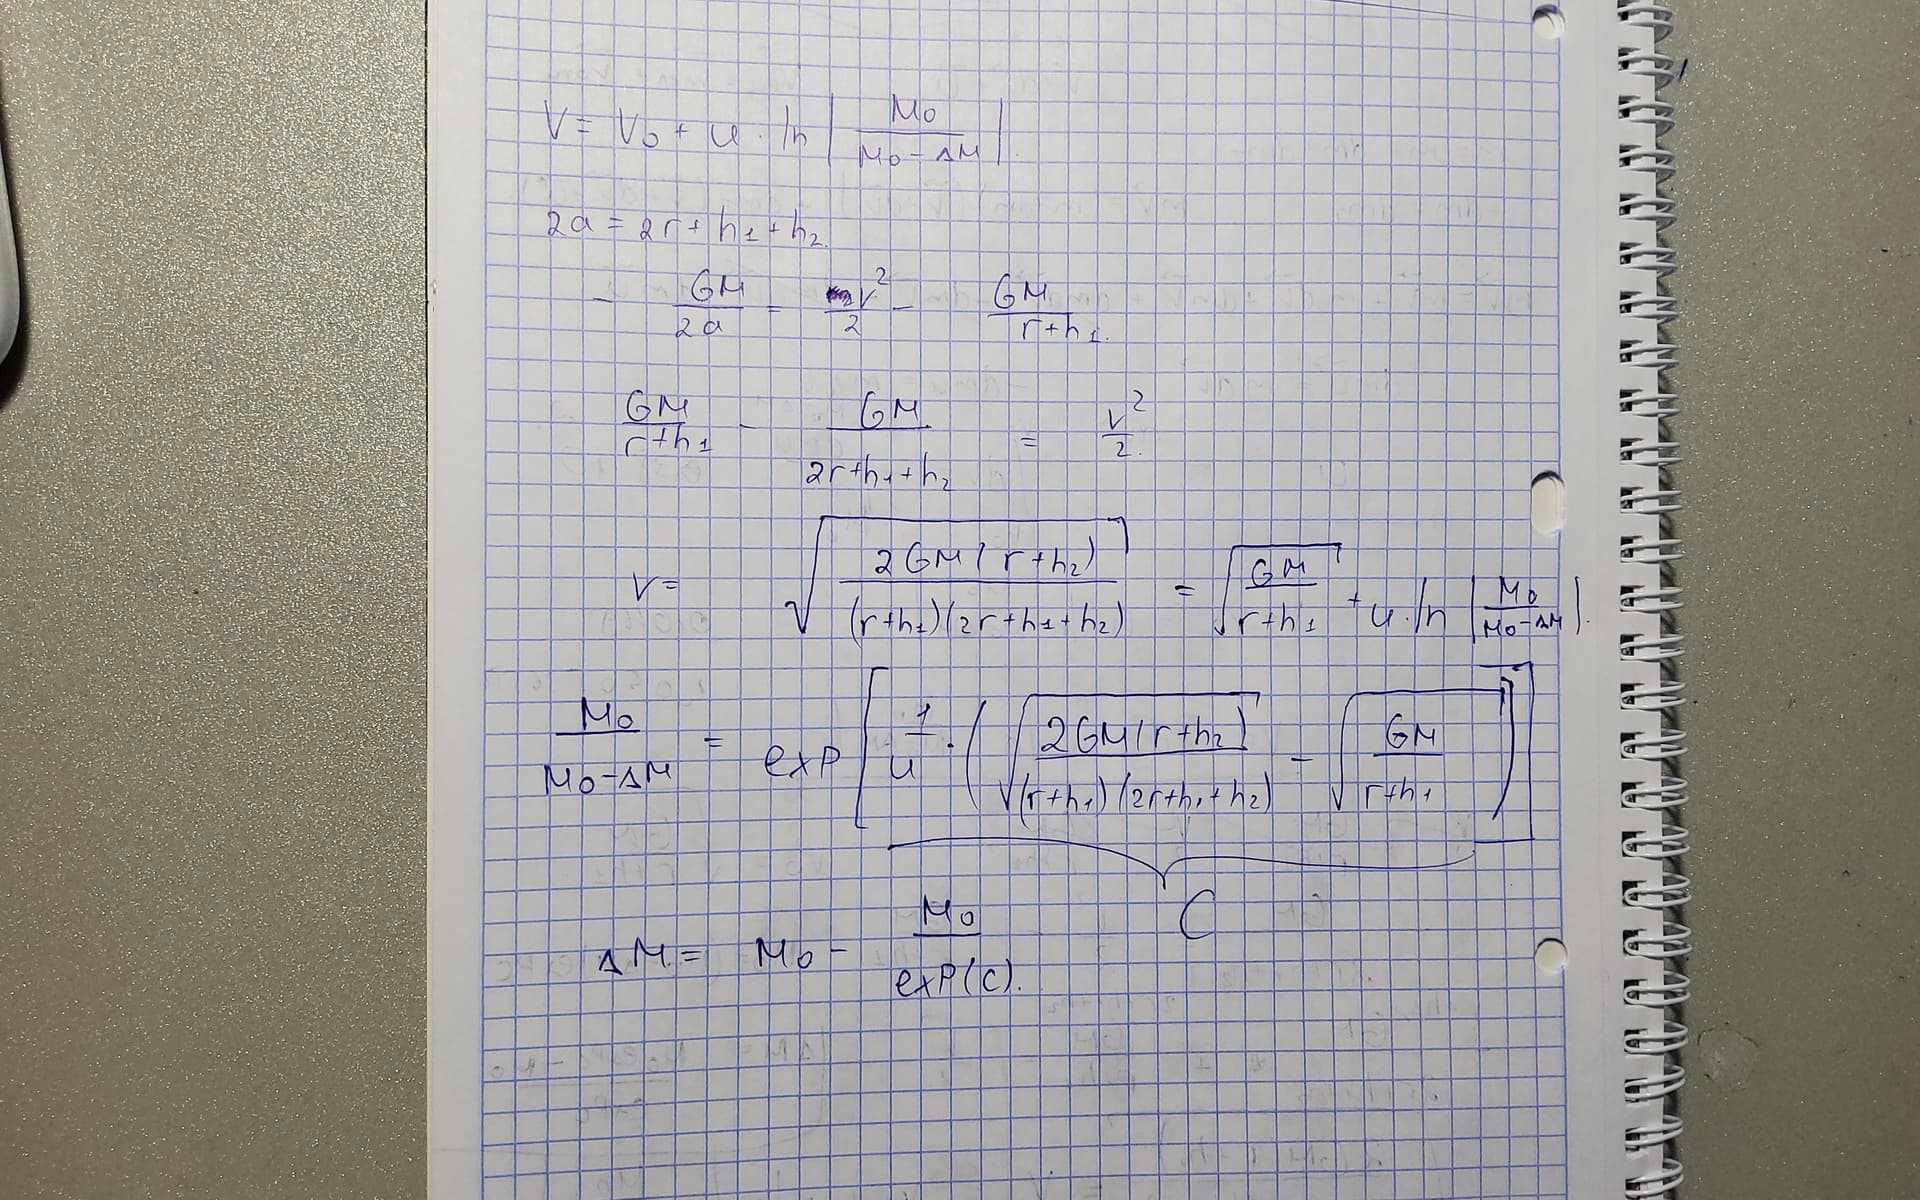 V = V₀ + u · ln |M₀ / (M₀ - ΔM)|.
2a = 2r + h₁ + h₂.
- GM / 2a = v² / 2 - GM / (r + h₁).
GM / (r + h₁) - GM / (2r + h₁ + h₂) = v² / 2.
V = √(2GM(r + h₂) / ((r + h₁)(2r + h₁ + h₂))) = √(GM / (r + h₁)) + u · ln |M₀ / (M₀ - ΔM)|.
M₀ / (M₀ - ΔM) = exp [1/u · (√(2GM(r + h₂) / ((r + h₁)(2r + h₁ + h₂))) - √(GM / (r + h₁)))]
C
ΔM = M₀ - M₀ / exp(C).